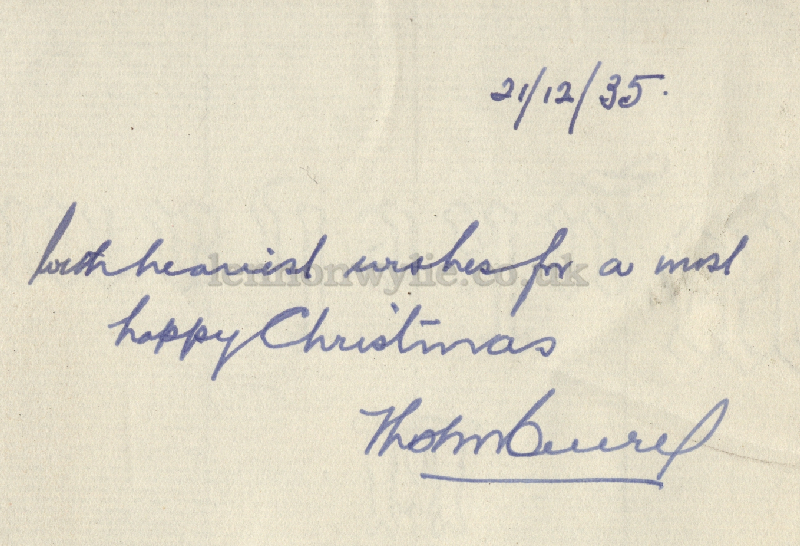 21/12/35.
With heartiest wishes for a most
lennonwylie.co.uk
happy Christmas